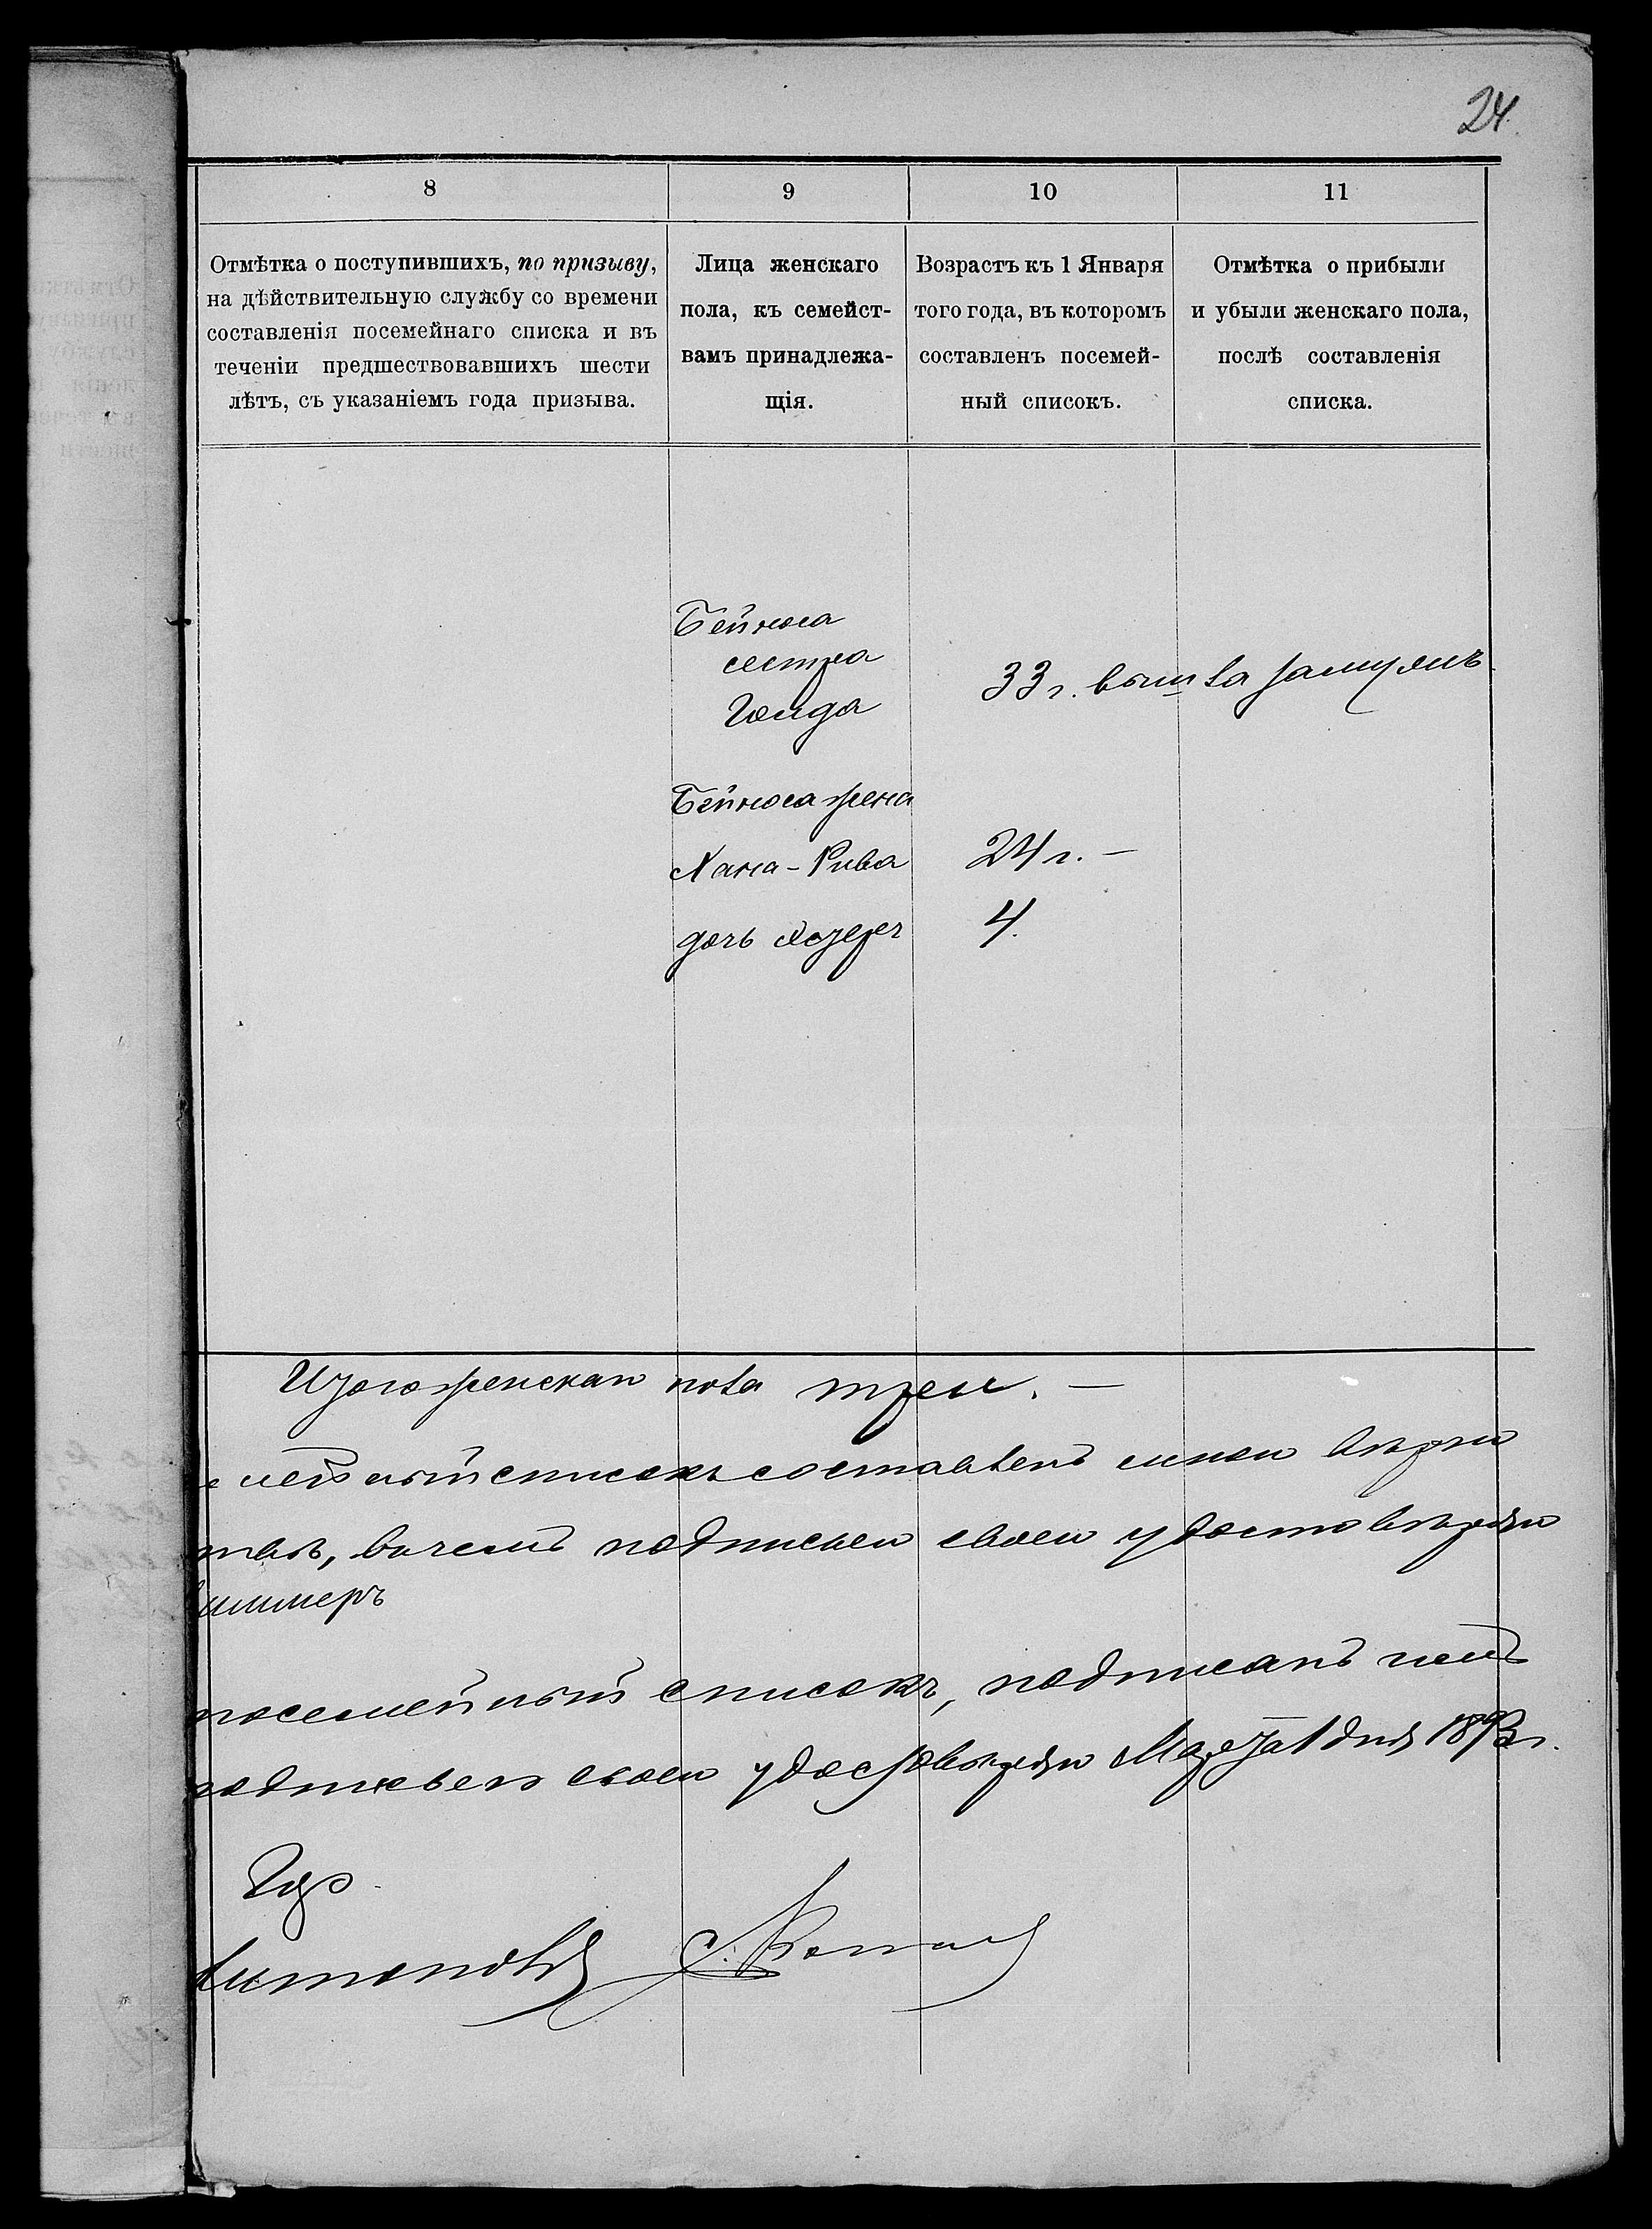 24.
8 9 10 11
Отмѣтка о поступившихъ, по призыву,
на дѣйствительную службу со времени
составленія посемейнаго списка и въ
теченіи предшествовавшихъ шести
лѣтъ, съ указаніемъ года призыва.
Лица женскаго
пола, къ семейст-
вамъ принадлежа-
щія.
Возрастъ къ 1 Января
того года, въ которомъ
составленъ посемей-
ный списокъ.
Отмѣтка о прибыли
и убыли женскаго пола,
послѣ составленія
списка.
Бейноса
сестра
Голда
33 г. вышла замужъ
Бейноса жена
Хана-Рива 24 г. —
дочь 4.
Итого женскаго пола три. —
списокъ составленъ мною вѣрно
въ чемъ подписью своею удостовѣряю
посемейный списокъ, подписанъ
подписью своею удостовѣряю Марта 1 дня 189